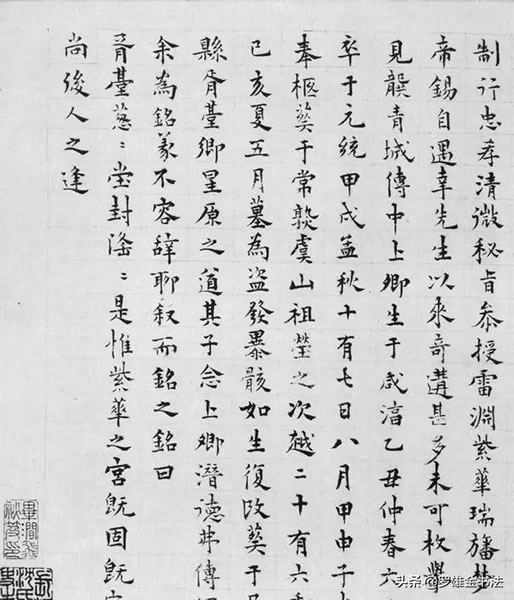 制行忠孝清微秘旨叅授雷淵紫華瑞旛
帝錫自遇幸先生以來奇遘甚多未可枚舉
見龔青城傳中上卿生于咸淳乙丑仲春六
卒于元統甲戌孟秋十有七日八月甲申子
奉柩葬于常熟虞山祖塋之次越二十有六
己亥夏五月墓為盗發暴骸如生復改葬于
縣胥臺鄉星原之道其子念上卿潛德弗傳
余為銘義不容辭聊叙而銘之銘曰
胥臺蔥〻堂封滃〻是惟紫華之宮既固既
尚後人之逢
头条 @罗雄金书法